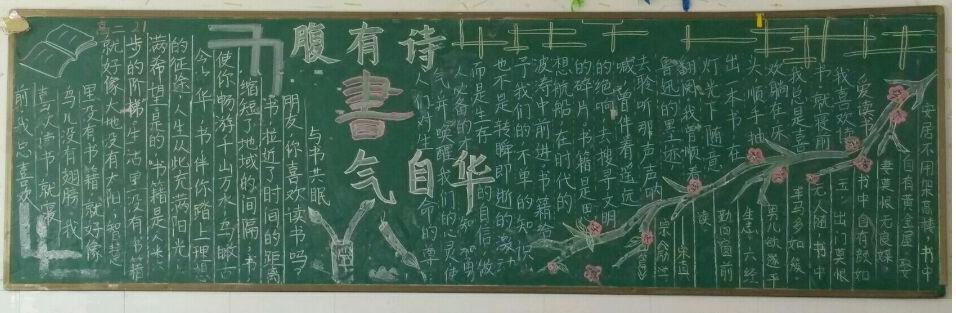 腹有诗
書
气自华
安居不用架高楼,书中
自有黄金屋,娶
妻莫恨无良媒,
书中自有颜如
玉。出门莫恨
无人随,书中
车马多如簇。
男儿欲遂平
生志,六经
勤向窗前
读。
宋真宗
《励学篇》
爱读书
我喜欢读
书,就寝前
我总是喜
欢躺在床
头顺手抽
出一本书,在
灯光下随意
翻阅,我顺着
的墨迹,
去聆听那声声呐
喊,曾伴着遥远
的绝唱,去搜寻文明
的碎片。书籍是思
想航船,在时代的
波涛中前进。书籍给
予我们的不单单的知识,
也不是转瞬即逝的激动,
而是生存的自信,做
人必备的
气,并唤醒我们的心灵使
人们对生命的尊
与书共眠
朋友,你喜欢读书吗?
书,拉近了时间的距离
缩短了地域的间隔,书,
使你畅游千山万水,鸟瞰古
今。书伴你踏上理想
的征途,人生从此充满阳光
满希望是的,书籍是人类
步的阶梯,生活里没有书籍
就好像大地没有太阳,智慧
里没有书籍,就好像
鸟儿没有翅膀。我
喜欢读书,就寝
前,我总喜欢
高二
21